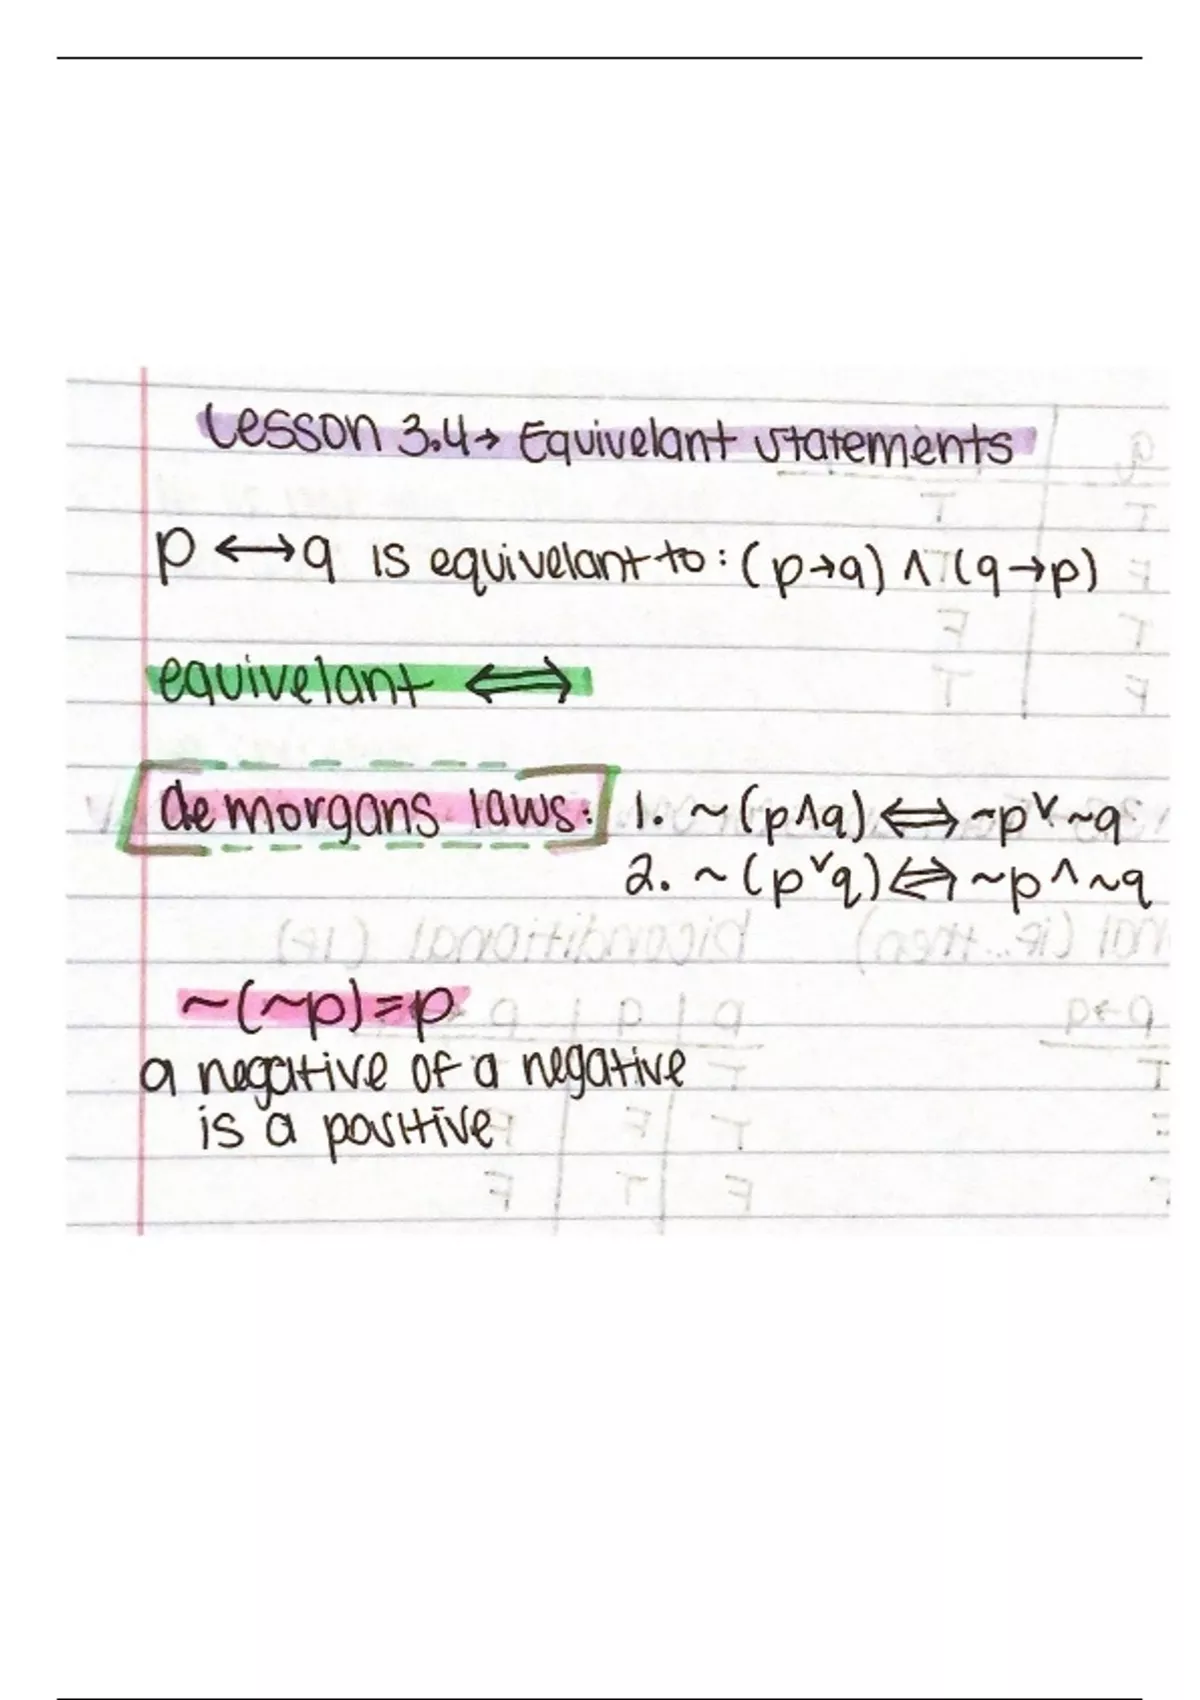 Lesson 3.4→ Equivelant statements
p ⟷ q is equivelant to: (p→q) ∧ (q→p)
equivelant ⟺
demorgans laws: 1. ~(p∧q) ⟺ ~p∨~q
2. ~(p∨q) ⟺ ~p∧~q
~(~p)=p
a negative of a negative
is a positive